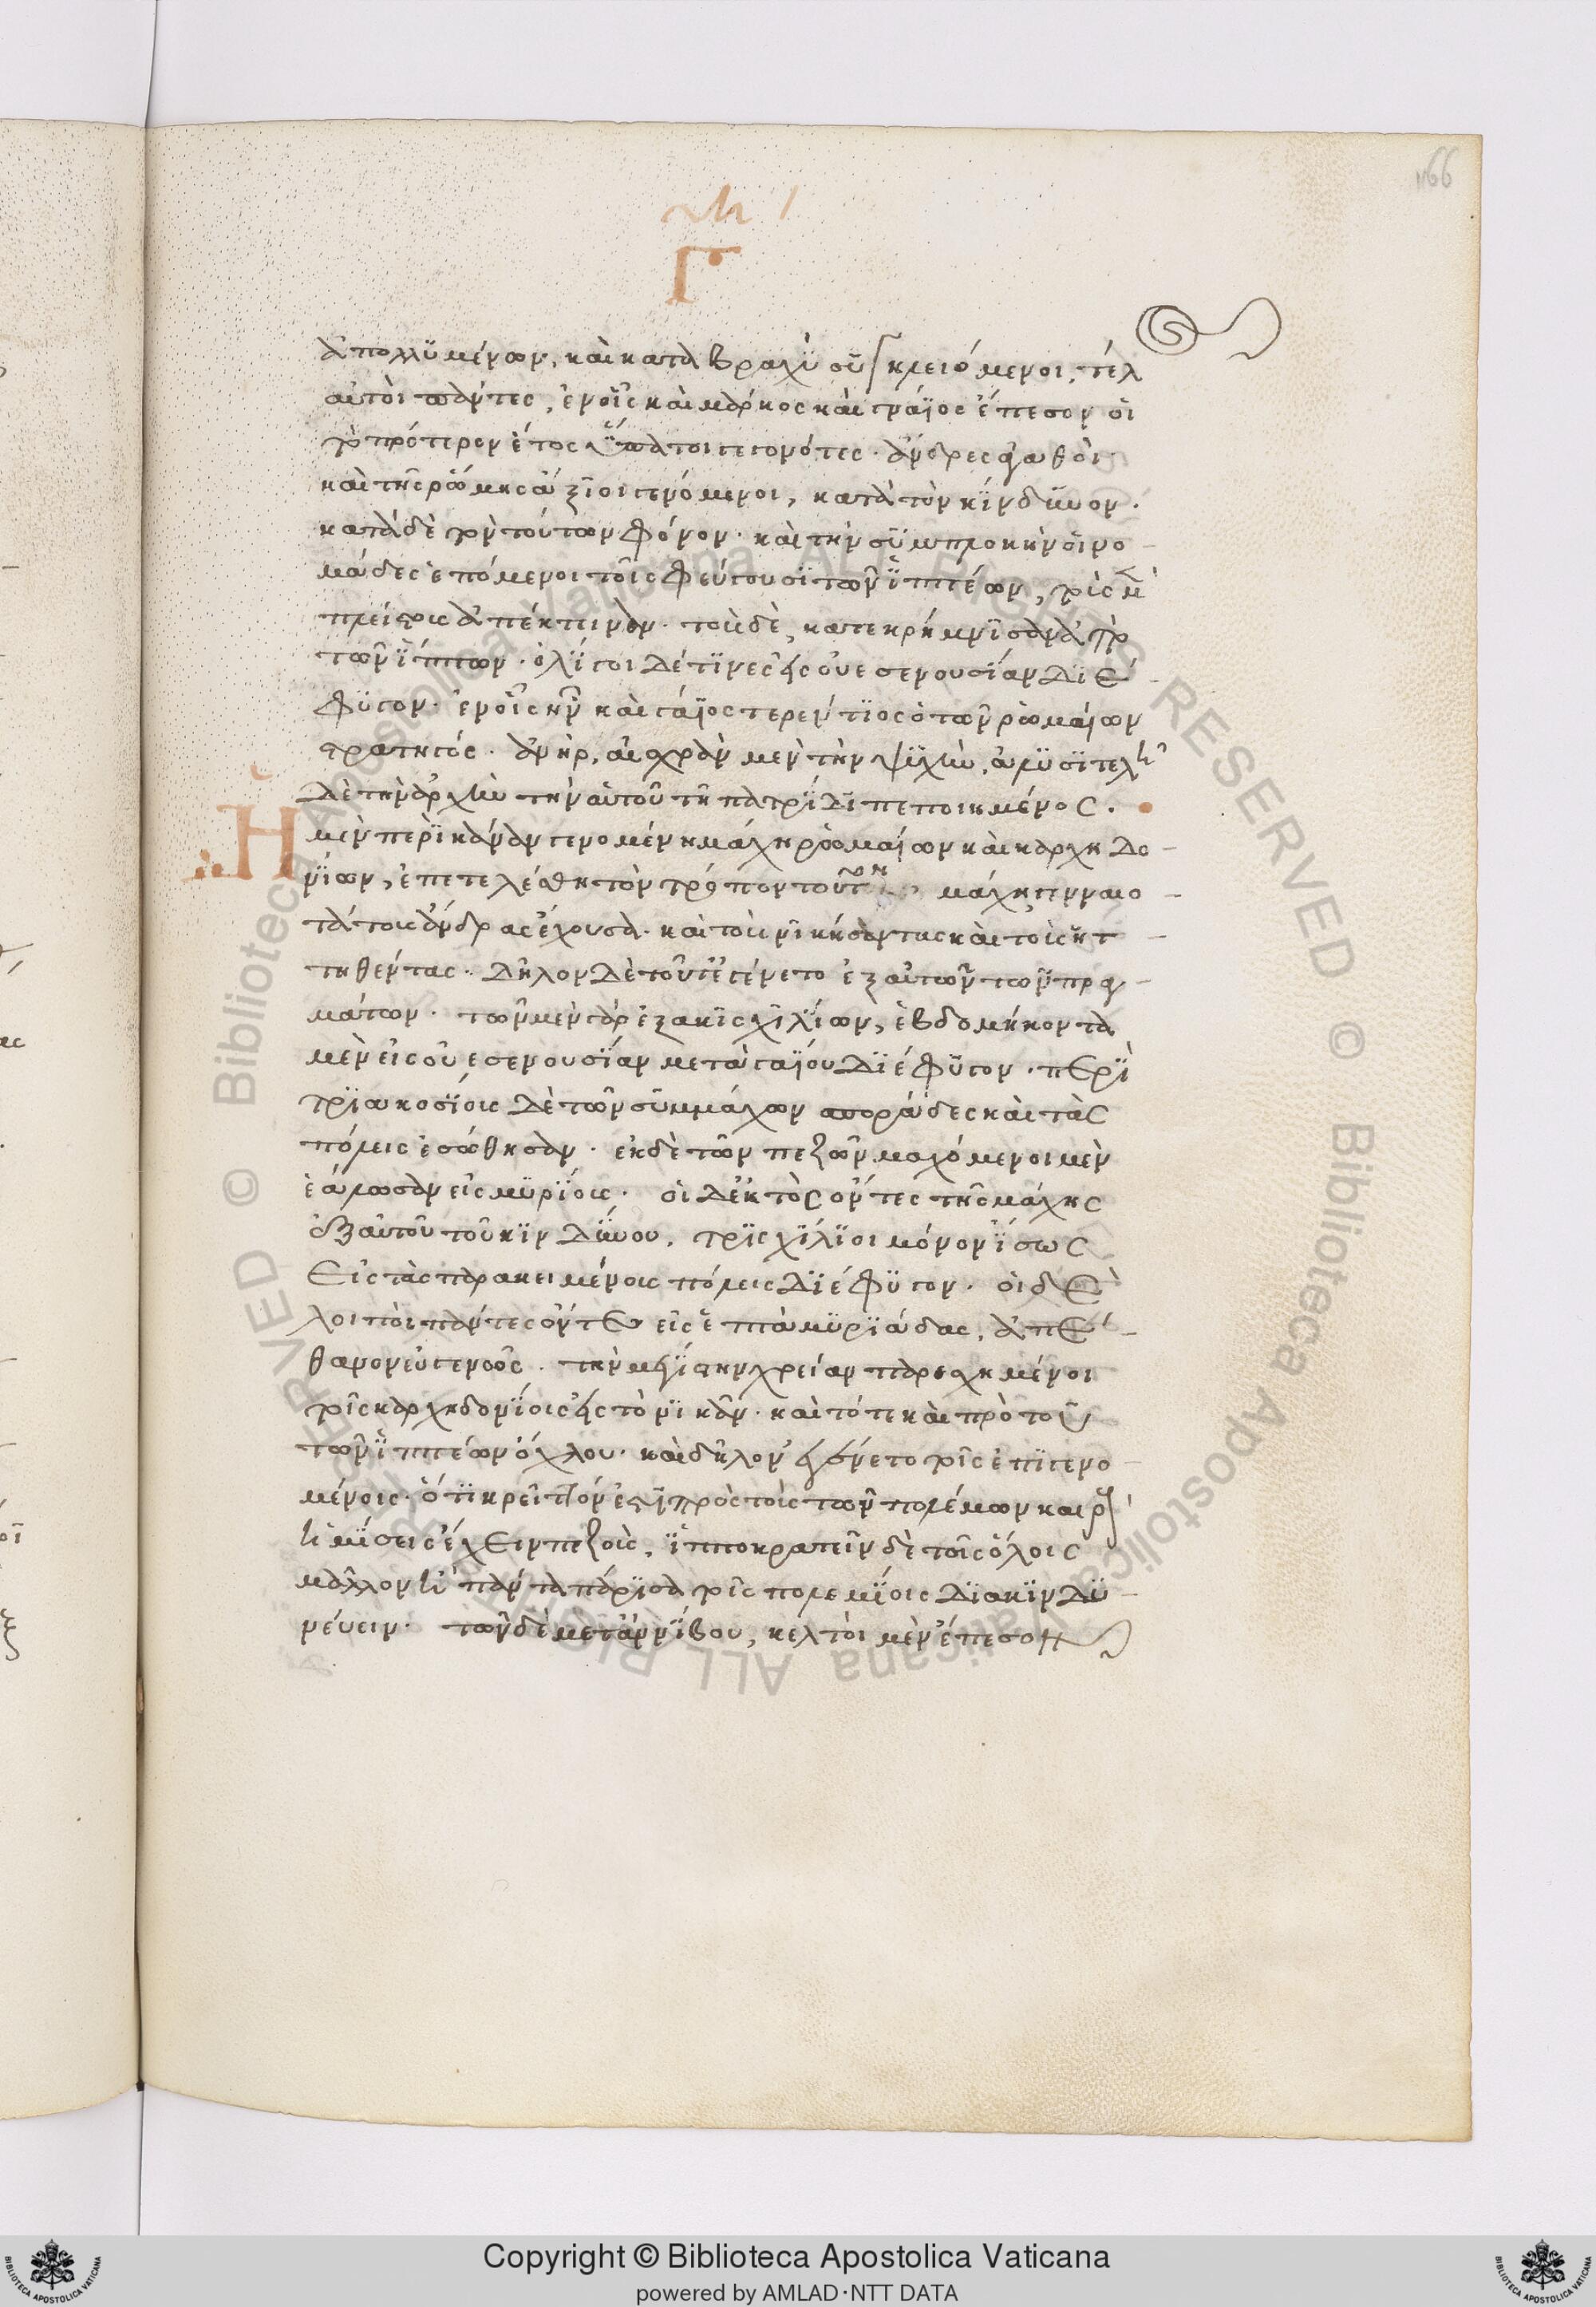 166
Γ
ἀπολλυμένων, καὶ κατὰ βραχὺ συγκλειόμενοι, τέλ
αὐτοὶ πάντες, ἐν οἷς καὶ μάρκος καὶ γνάϊος ἔπεσον οἱ
τὸ πρότερον ἔτος ὕπατοι γεγονότες. ἄνδρες ἀγαθοὶ
καὶ τῆς ῥώμης ἄξιοι γενόμενοι, κατὰ τὸν κίνδυνον.
κατὰ δὲ τὸν τούτων φόνον. καὶ τὴν συμπλοκὴν οἱ νο
μάδες ἑπόμενοι τοῖς φεύγουσι τῶν ἱππέων, τοὺς μὲν
πλείστους ἀπέκτειναν. τοὺς δὲ, κατεκρήμνισαν ἀπὸ
τῶν ἵππων. ὀλίγοι δέ τινες εἰς οὐεσενουσίαν διέ
φυγον. ἐν οἷς ἦν καὶ γάϊος τερέντιος ὁ τῶν ῥωμαίων
στρατηγός. ἀνὴρ, αἰσχρὰν μὲν τὴν ψυχὴν, ἀλυσιτελῆ
δὲ τὴν ἀρχὴν τὴν αὑτοῦ τῇ πατρίδι πεποιημένος.
Ἡ μὲν περὶ κάναν γενομένη μάχη ῥωμαίων καὶ καρχηδο
νίων, ἐπετελέσθη τὸν τρόπον τοῦτον, μάχη γενναιο
τάτους ἄνδρας ἔχουσα. καὶ τοὺς νικήσαντας καὶ τοὺς ἡτ
τηθέντας. δῆλον δὲ τοῦτ' ἐγένετο ἐξ αὐτῶν τῶν πραγ
μάτων. τῶν μὲν γὰρ ἑξακισχιλίων, ἑβδομήκοντα
μὲν εἰς οὐεσενουσίαν μετὰ γαΐου διέφυγον. περὶ
τριακοσίους δὲ τῶν συμμάχων σποράδες καὶ τὰς
πόλεις ἐσώθησαν. ἐκ δὲ τῶν πεζῶν μαχόμενοι μὲν
ἑάλωσαν εἰς μυρίους. οἱ δ' ἐκτὸς ὄντες τῆς μάχης
ἐξ αὐτοῦ τοῦ κινδύνου, τρισχίλιοι μόνον ἴσως
εἰς τὰς παρακειμένους πόλεις διέφυγον. οἱ δὲ
λοιποὶ πάντες ὄντες εἰς ἑπτὰ μυριάδας, ἀπέ
θανον εὐγενῶς. τὴν μεγίστην χρείαν παρεσχημένοι
τοῖς καρχηδονίοις εἰς τὸ νικᾶν. καὶ τότε καὶ πρὸ τοῦ
τῶν ἱππέων ὄχλου. καὶ δῆλον ἐγένετο τοῖς ἐπιγενο
μένοις. ὅτι κρεῖττόν ἐστι πρὸς τοὺς τῶν πολέμων καιροὺς
ἡμίσεις ἔχειν πεζοὺς, ἱπποκρατεῖν δὲ τοῖς ὅλοις
μᾶλλον ἢ πάντα πάρισα τοῖς πολεμίοις διακινδυ
νεύειν. τῶν δὲ μετ' ἀννίβου, κελτοὶ μὲν ἔπεσον
Copyright © Biblioteca Apostolica Vaticana
powered by AMLAD·NTT DATA